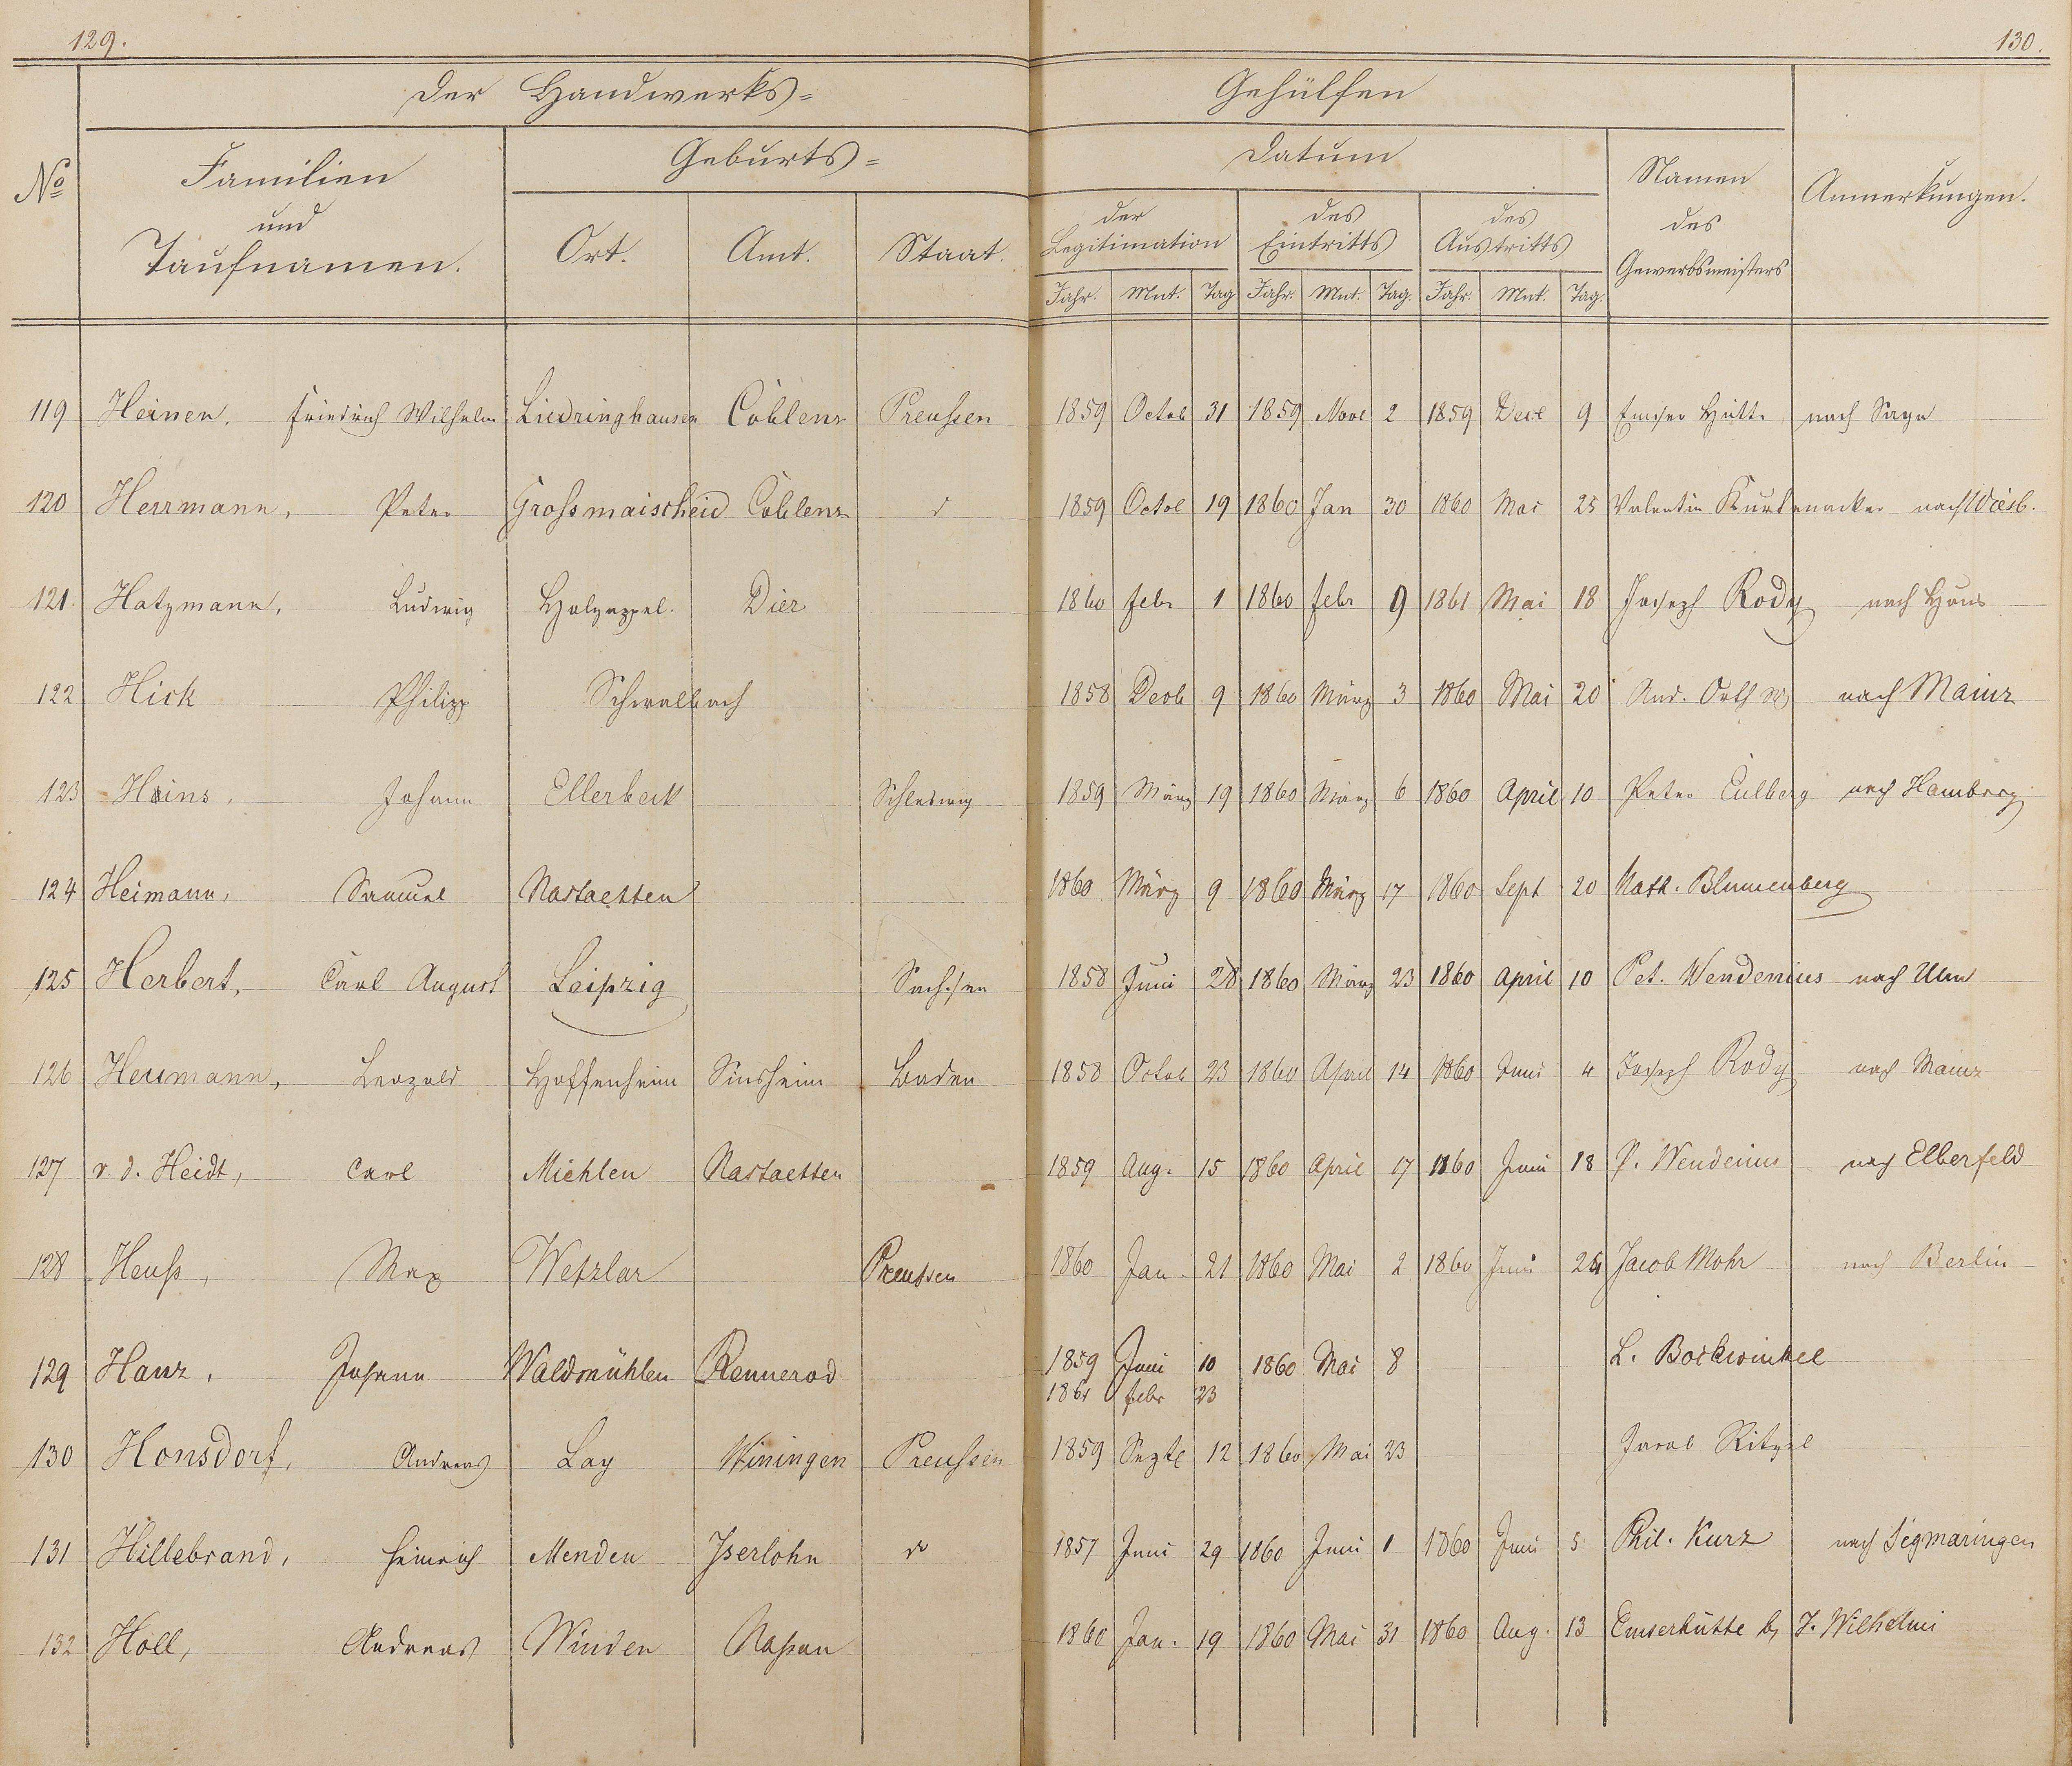 129.
130.
Der Handwerks= Gehülfen
No
Familien
und
Taufnamen.
Geburts=
Ort. Amt. Staat.
Datum
der
Legitimation
des
Eintritts
des
Austritts
Jahr. Mnt. Tag Jahr. Mnt. Tag. Jahr. Mnt. Tag.
Namen
des
Gewerbsmeisters
Anmerkungen.
119 Heinen, Friedrich Wilhelm Liedringhausen Coblenz Preußen 1859 Octob 31 1859 Nove 2 1859 Dece 9 Emser Hütte nach Sayn
120 Herrmann, Peter Grossmaischeid Coblenz 1859 Octob 19 1860 Jan 30 1860 Mai 25 Valentin nach Wiesb.
121. Hatzmann, Ludwig Holzappel. Diez 1860 Febr 1 1860 Febr 9 1861 Mai 18 Joseph Rody nach Haus
122 Hick Philipp Schwalbach 1858 Decb 9 1860 März 3 1860 Mai 20 And. Orth nach Mainz
123 Hains, Johann Ellerbeck Schleswig 1859 März 19 1860 März 6 1860 April 10 Peter Eulberg nach Hamburg
124 Heimann, Samuel Nastaetten 1860 März 9 1860 März 17 1860 Sept 20 Nath. Blumenberg
125 Herbert, Carl August Leipzig Sachsen 1858 Juni 28 1860 März 23 1860 April 10 Pet. Wendenius nach Ulm
126 Heumann, Leopold Hoffenheim Sinsheim Baden 1858 Octob 23 1860 April 14 1860 Juni 4 Joseph Rody nach Mainz
127 v. d. Heidt, Carl Miehlen Nastaetten 1859 Aug. 15 1860 April 17 1860 Juni 18 P. Wendenius nach Elberfeld
128 Heuß, Max Wetzlar Preussen 1860 Jan. 21 1860 Mai 2 1860 Juni 24 Jacob Mohr nach Berlin
129 Hanz, Johann Waldmühlen Rennerod 1859 Juni 10 1860 Mai 8 L. Bockwinkel
1861 Febr 23
130 Honsdorf, Andreas Lay Winingen Preußen 1859 Septe 12 1860 Mai 23 Jacob Ritzel
131 Hillebrand, Heinrich Menden Iserlohn do 1857 Juni 29 1860 Juni 1 1860 Juni 5 Phil. Kurz nach Sigmaringen
132 Holl, Andreas Winden Naßau 1860 Jan. 19 1860 Mai 31 1860 Aug. 13 Emserhütte b, J. Wilhelmi